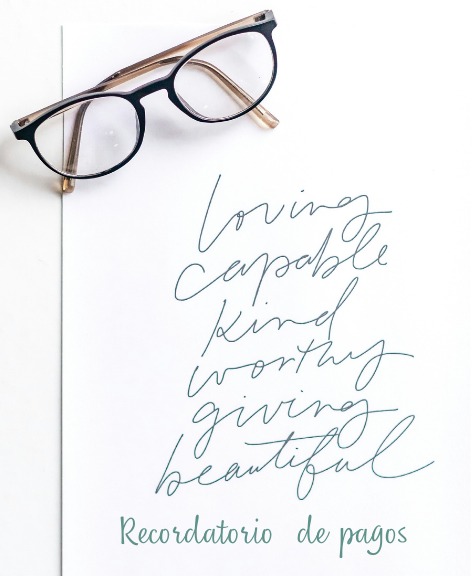 loving
capable
kind
worthy
giving
beautiful
Recordatorio de pagos